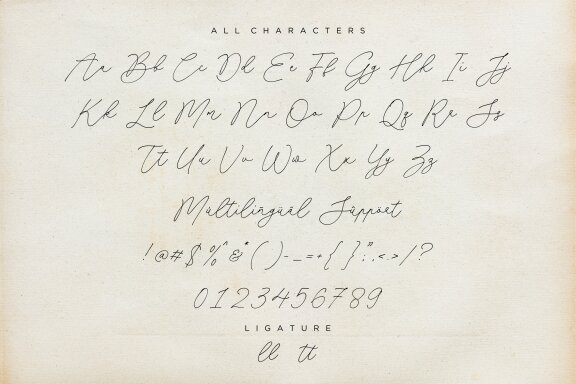 ALL CHARACTERS
Aa Bb Cc Dd Ee Ff Gg Hh Ii Jj
Kk Ll Mm Nn Oo Pp Qq Rr Ss
Tt Uu Vv Ww Xx Yy Zz
Mültilingüäl Süppöet
!@#$%^&*()-_=+{}:;",.<>/?
0123456789
LIGATURE
ll tt